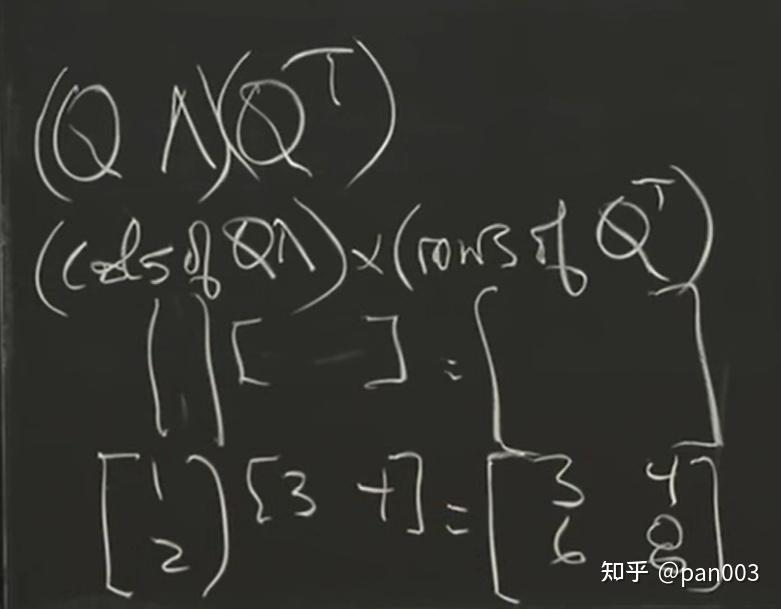 (Q Λ)(Qᵀ)
(cols of QΛ) × (rows of Qᵀ)
[ ] [ ] = [ ]
[1 2] [3 4] = [3 4
6 8]
知乎 @pan003